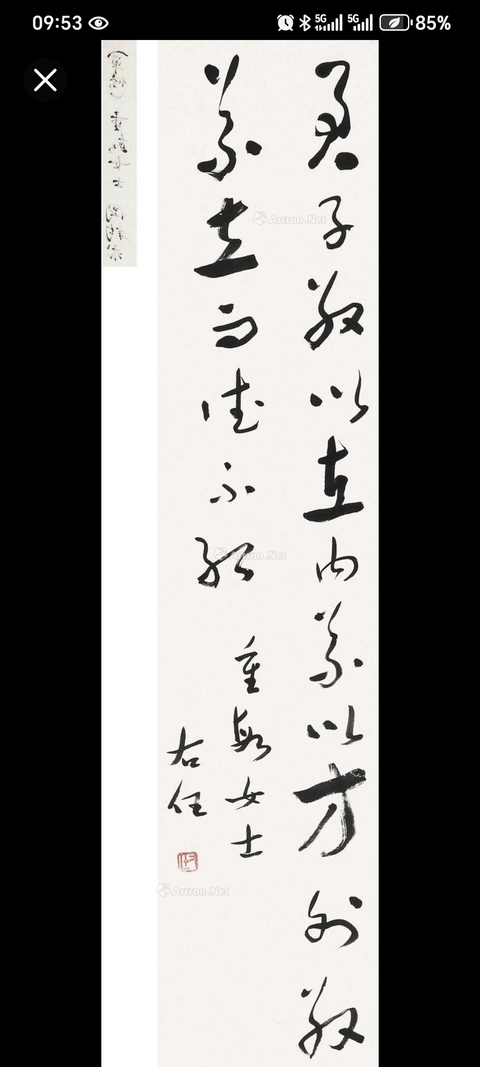 09:53
5G 5G 85%
君子敬以直内義以方外敬
義立而德不孤
重毅女士
右任
Artron.Net
Artron.Net
Artron.Net